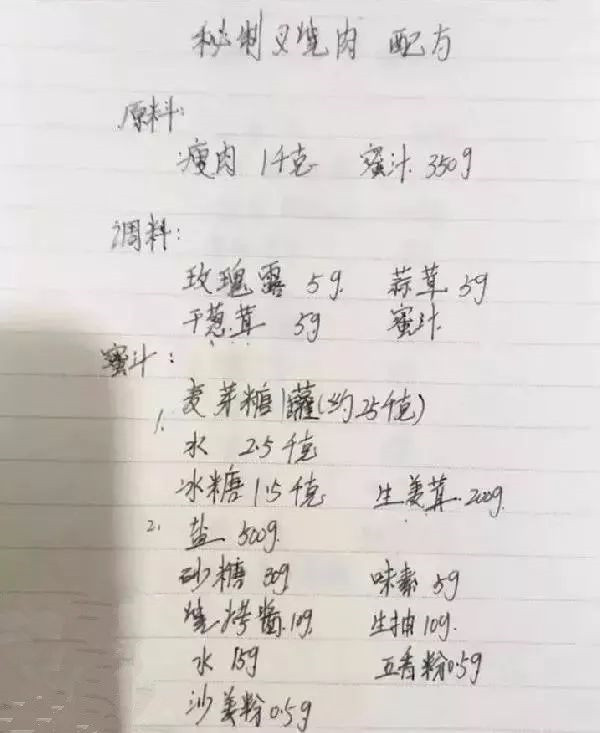 秘制叉烧肉 配方
原料:
瘦肉 1千克 蜜汁 350g
调料:
玫瑰露 5g 蒜茸 5g
干葱茸 5g 蜜汁
蜜汁:
1. 麦芽糖1罐(约25千克)
水 2.5千克
冰糖 1.5千克 生姜茸 200g
2. 盐 500g
砂糖 30g 味素 5g
烧烤酱 10g 生抽 10g
水 15g 五香粉 0.5g
沙姜粉 0.5g